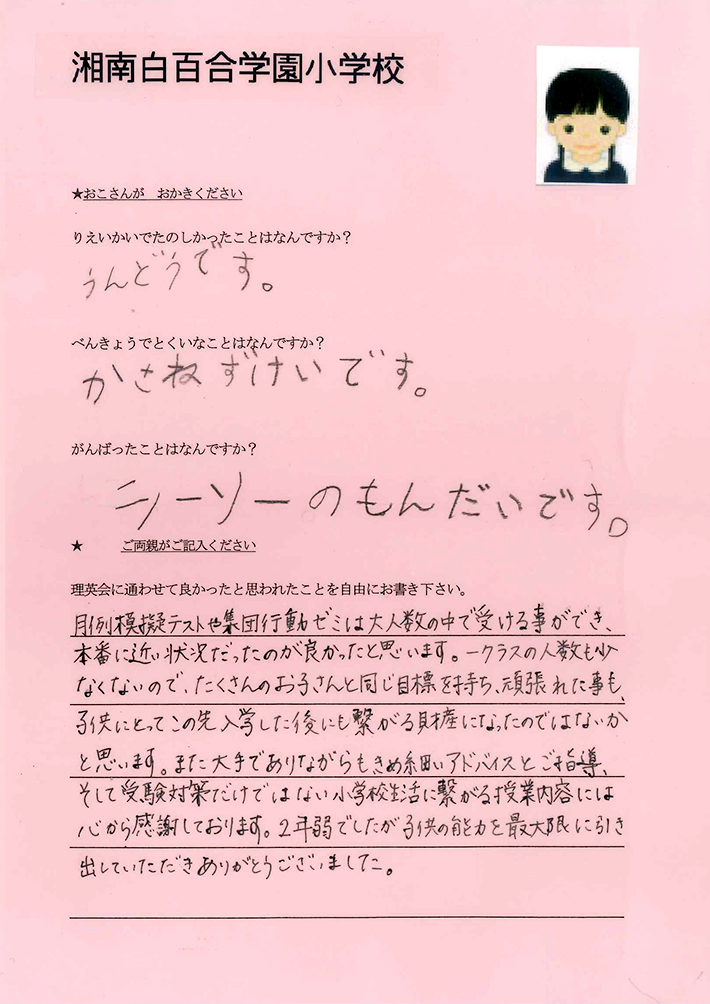 湘南白百合学園小学校
★おこさんが　おかきください
りえいかいでたのしかったことはなんですか？
うんどうです。
べんきょうでとくいなことはなんですか？
かさねずけいです。
がんばったことはなんですか？
シーソーのもんだいです。
★　ご両親がご記入ください
理英会に通わせて良かったと思われたことを自由にお書き下さい。
月例模擬テストや集団行動ゼミは大人数の中で受ける事ができ、
本番に近い状況だったのが良かったと思います。一クラスの人数も少
なくないので、たくさんのお子さんと同じ目標を持ち、頑張れた事も、
子供にとってこの先入学した後にも繋がる財産になったのではないか
と思います。また大手でありながらもきめ細いアドバイスとご指導、
そして受験対策だけではない小学校生活に繋がる授業内容には
心から感謝しております。2年弱でしたが子供の能力を最大限に引き
出していただきありがとうございました。